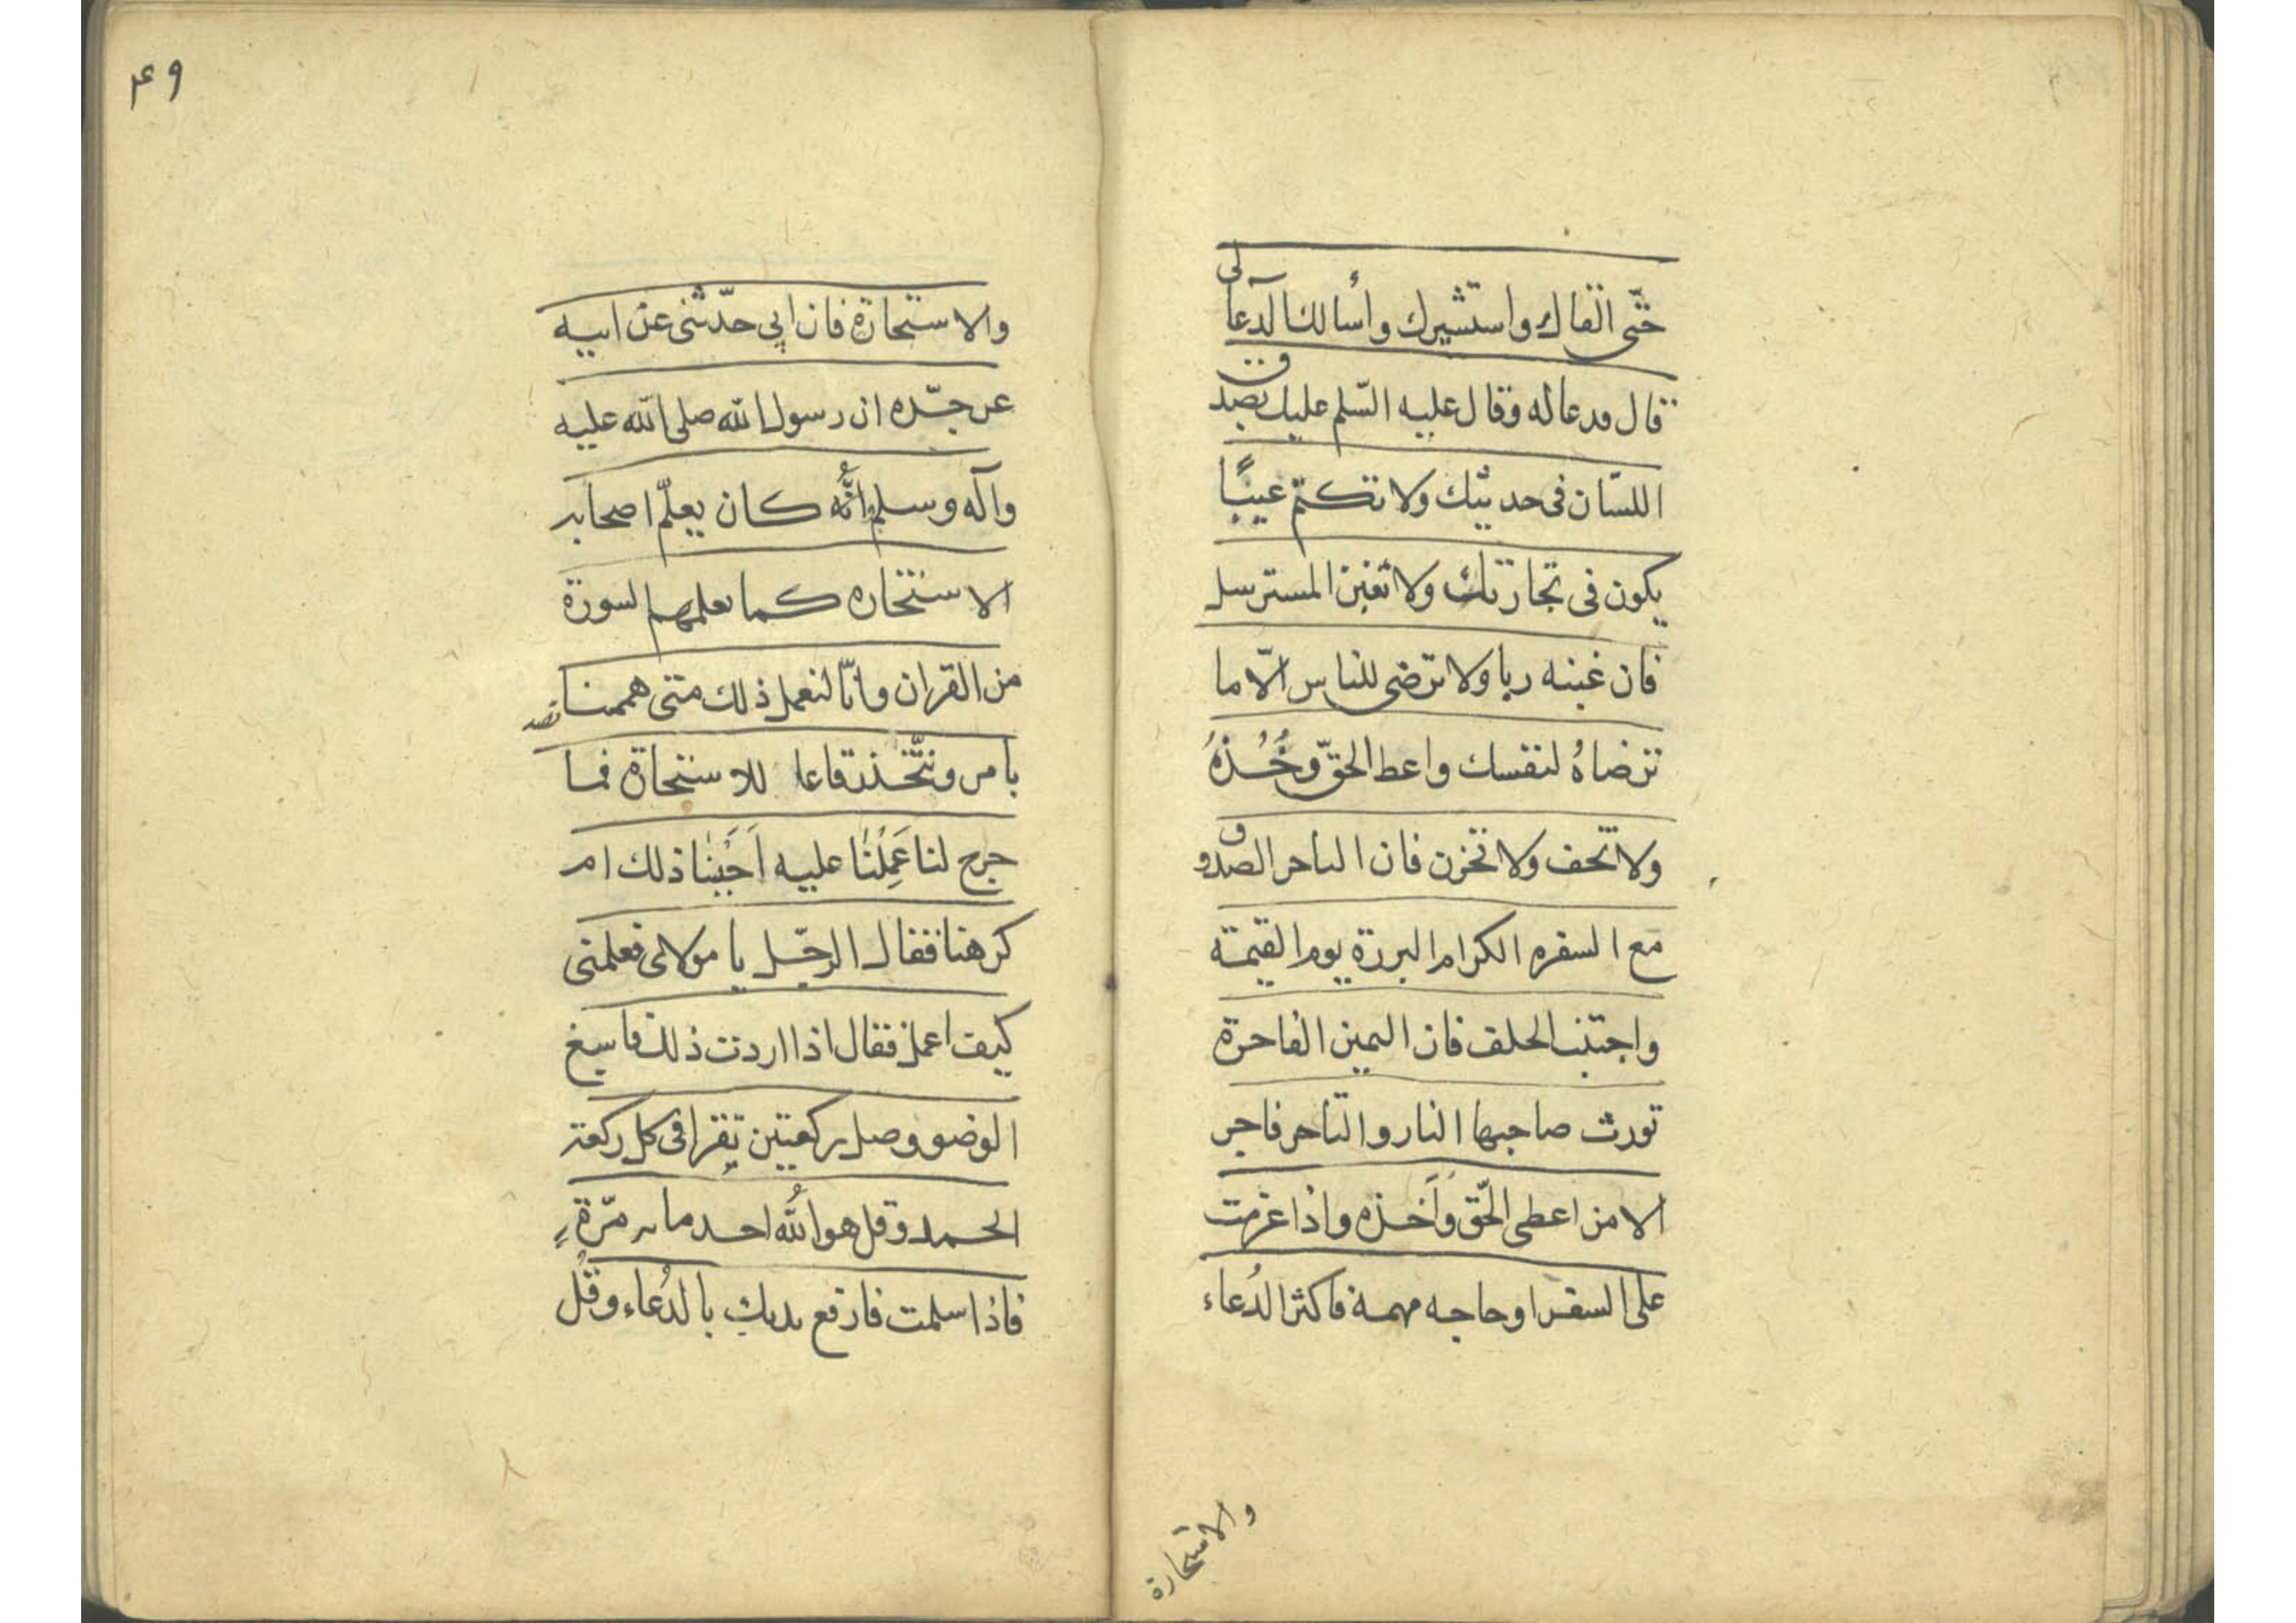 حتّى القاك واستشيرك وأسالك الدعا لى
قال فدعا له وقال عليه السّلم عليك بصدق
اللسّان فى حديثك ولا تكتم عيبًا
يكون فى تجارتك ولا تغبن المسترسل
فان غبنه ربا ولا ترضى للناس الّا ما
ترضاهُ لنفسك واعط الحقّ وخُذهُ
ولا تخف ولا تخزن فان التاجر الصدوق
مع السفره الكرام البررة يوم القيمة
واجتنب الحلف فان اليمين الفاجرة
تورث صاحبها النار والتاجر فاجر
الا من اعطى الحّق وَاَخذه واذا عزمت
على السفر او حاجه مهمة فاكثر الدُعاء
والاستخارة
٤٩
والاستخارة فان ابي حدّثنى عن ابيه
عن جدّه ان رسول الله صلى الله عليه
وآله وسلم أنّه كان يعلّم اصحابه
الاستخاره كما يعلمهم السورة
من القران وانّا لنعمل ذلك متى هممنا
بامر ونتّخذ رقاعا للاستخارة فما
خرج لنا عَمِلْنَا عليه اَحَبَبْنا ذلك ام
كرهنا فقال الرجّل يا مولاى فعلمنى
كيف اعمل فقال اذا اردت ذلك فاسبغ
الوضو وصل ركعتين تقرا فى كل ركعة
الحمد وقل هو اللّه احد مايه مّرة
فاذا سلمت فارفع يديك بالدُعاء وقُل